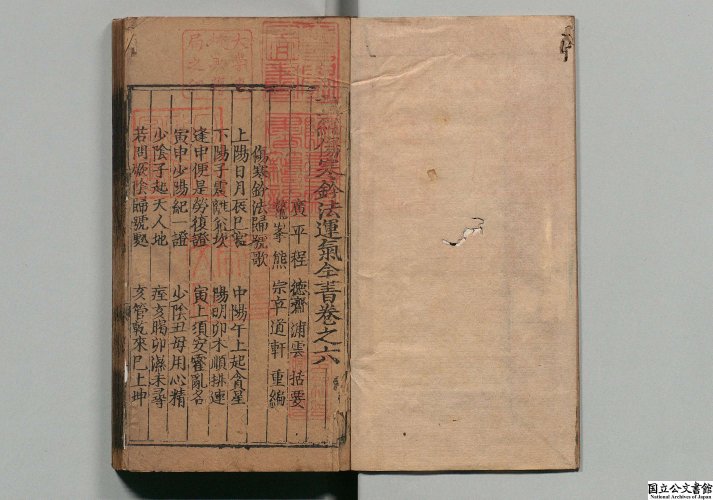 傷寒鈐法運氣全書卷之六
廣平程德齋浦雲括要
鰲峯熊宗立道軒重編
傷寒鈐法歸號歌
上陽日月辰巳宮 中陽午上起貪星
下陽子震 坎 陽明卯木順排連
逢申便是勞復證 寅上須安霍亂名
寅申少陽紀一證 少陰丑母用心精
少陰子起天人地 痓亥暍卯濕未尋
若問厥陰歸號 亥管乾來巳上坤
国立公文書館
National Archives of Japan